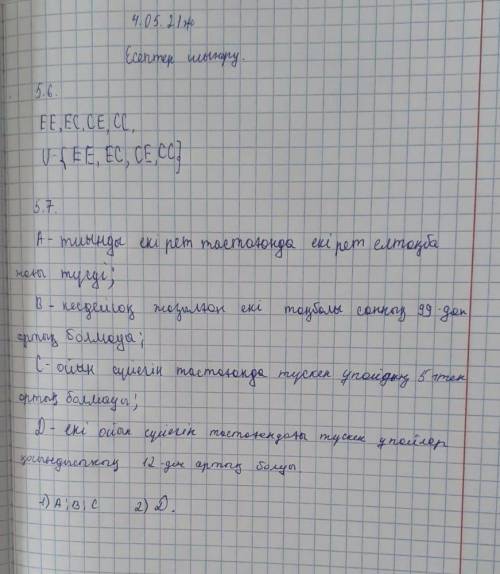 4.05.21ж
Есептер шығару.
5.6.
ЕЕ, ЕС, СЕ, СС,
U-{ЕЕ, ЕС, СЕ, СС}
5.7.
А- тиынды екі рет тастағанда екі рет елтаңба
жағы түсді;
В- кездейсоқ жазылған екі таңбалы санның 99-дан
артық болмауы;
С- ойын сүйегін тастағанда түскен ұпайдың 5-тен
артық болмауы;
D- екі ойын сүйегін тастағандағы түскен ұпайлар
қосындысының 12-ден артық болуы
1) А; В; С 2) D.